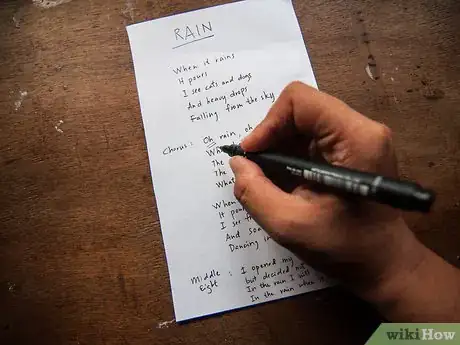 RAIN
When it rains
It pours
I see cats and dogs
And heavy drops
Falling from the sky
Chorus: Oh rain, oh
The
The
When
It
I see
And
Dancing
Middle Eight: I opened my
but decided not
In the rain I will
In the rain when
wikiHow